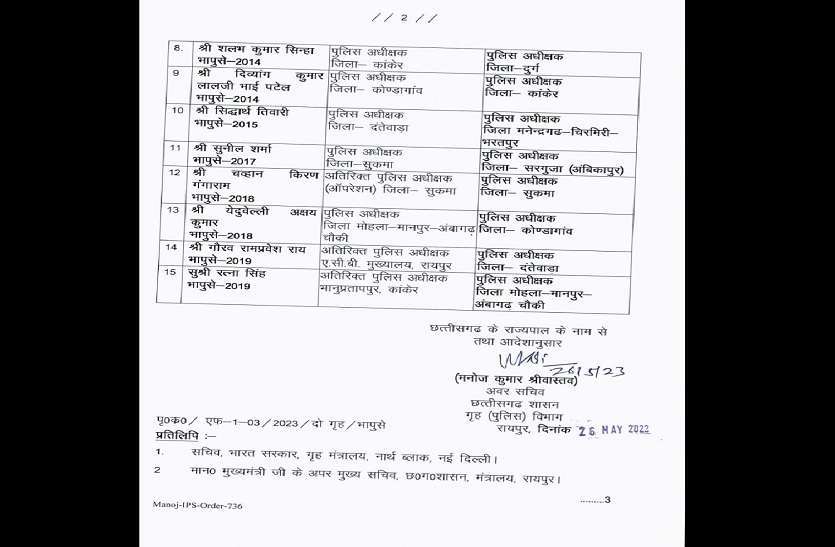 //2//
8. श्री शलभ कुमार सिन्हा पुलिस अधीक्षक पुलिस अधीक्षक
भापुसे–2014 जिला– कांकेर जिला–दुर्ग
9 श्री दिव्यांग कुमार पुलिस अधीक्षक पुलिस अधीक्षक
लालजी भाई पटेल जिला– कोण्डागांव जिला– कांकेर
भापुसे–2014
10 श्री सिद्धार्थ तिवारी पुलिस अधीक्षक पुलिस अधीक्षक
भापुसे–2015 जिला– दंतेवाड़ा जिला मनेन्द्रगढ–चिरमिरी–
भरतपुर
11 श्री सुनील शर्मा पुलिस अधीक्षक पुलिस अधीक्षक
भापुसे–2017 जिला–सुकमा जिला– सरगुजा (अंबिकापुर)
12 श्री चव्हान किरण अतिरिक्त पुलिस अधीक्षक पुलिस अधीक्षक
गंगाराम (ऑपरेशन) जिला– सुकमा जिला– सुकमा
भापुसे–2018
13 श्री येदुवेल्ली अक्षय पुलिस अधीक्षक पुलिस अधीक्षक
कुमार जिला मोहला–मानपुर–अंबागढ़ जिला– कोण्डागांव
भापुसे–2018 चौकी
14 श्री गौरव रामप्रवेश राय अतिरिक्त पुलिस अधीक्षक पुलिस अधीक्षक
भापुसे–2019 ए.सी.बी. मुख्यालय, रायपुर जिला– दंतेवाडा
15 सुश्री रत्ना सिंह अतिरिक्त पुलिस अधीक्षक पुलिस अधीक्षक
भापुसे–2019 भानुप्रतापपुर, कांकेर जिला मोहला–मानपुर–
अंबागढ चौकी
छत्तीसगढ के राज्यपाल के नाम से
तथा आदेशानुसार
26/5/23
(मनोज कुमार श्रीवास्तव)
अवर सचिव
छत्तीसगढ शासन
गृह (पुलिस) विभाग
पृ0क0/ एफ–1–03/2023/दो गृह/भापुसे रायपुर, दिनांक 26 MAY 2023
प्रतिलिपि :–
1. सचिव, भारत सरकार, गृह मंत्रालय, नार्थ ब्लाक, नई दिल्ली।
2 मान0 मुख्यमंत्री जी के अपर मुख्य सचिव, छ0ग0शासन, मंत्रालय, रायपुर।
.........3
Manoj-IPS-Order-736